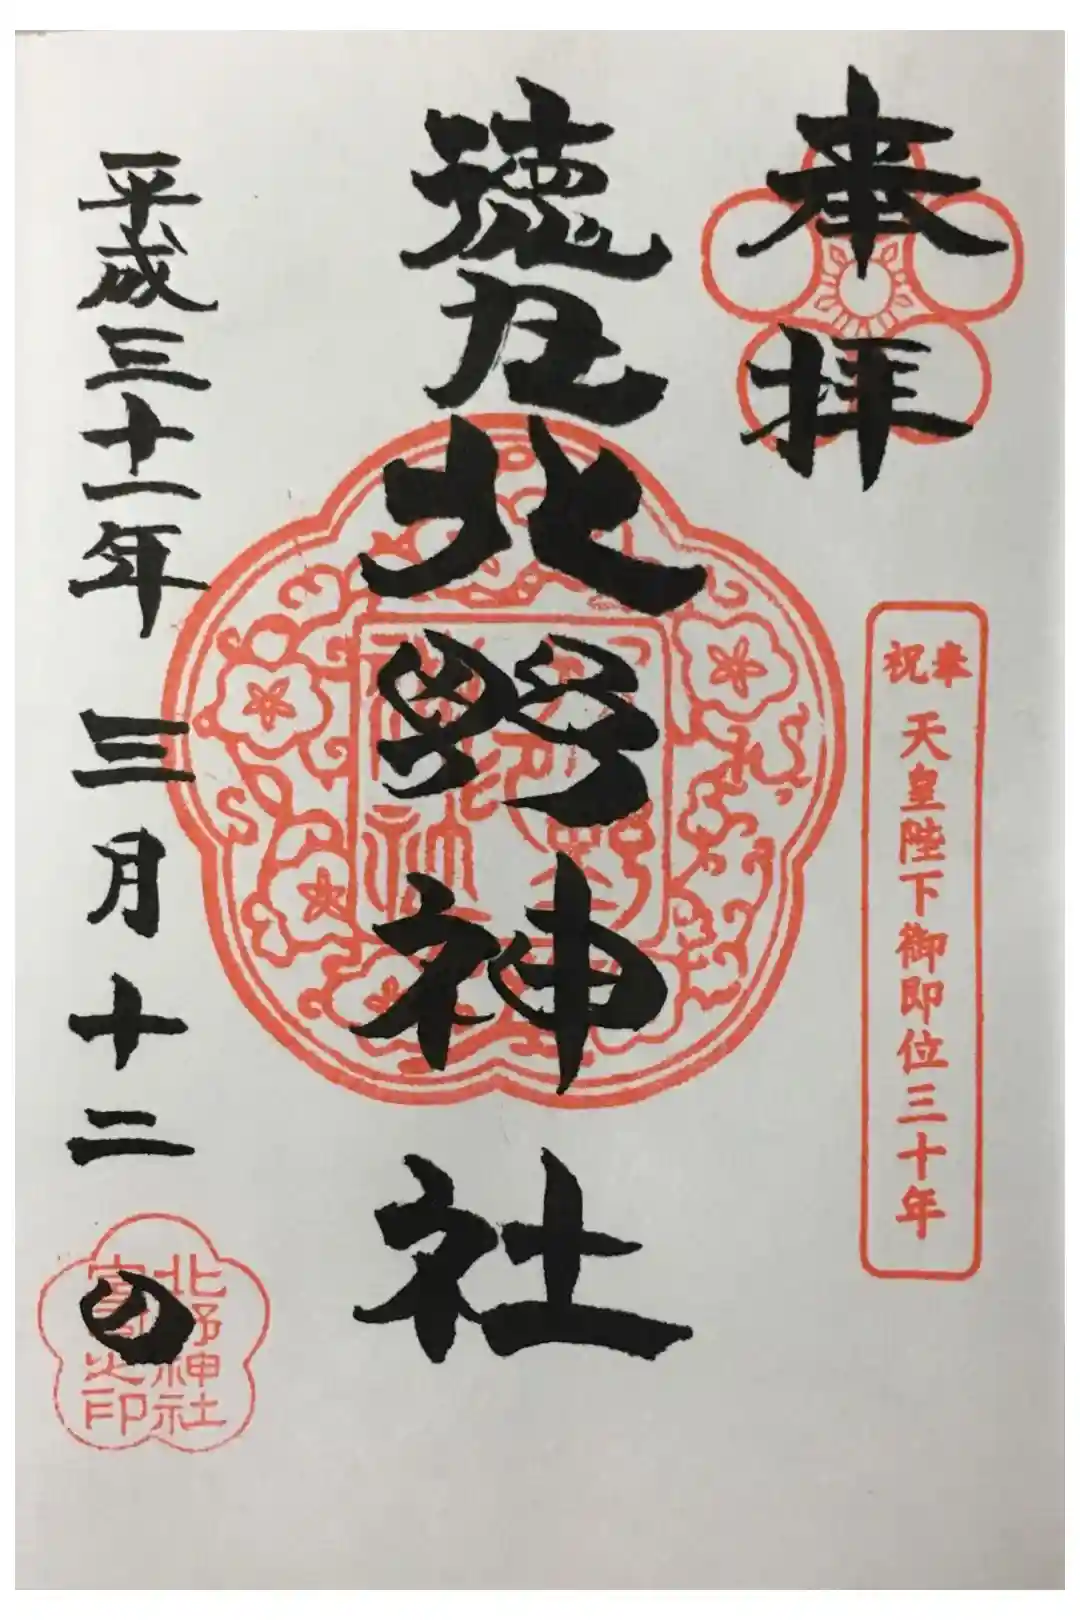 奉拝
奉祝 天皇陛下御即位三十年
徳丸北野神社
平成三十一年三月十二日
北野神社
宮司之印